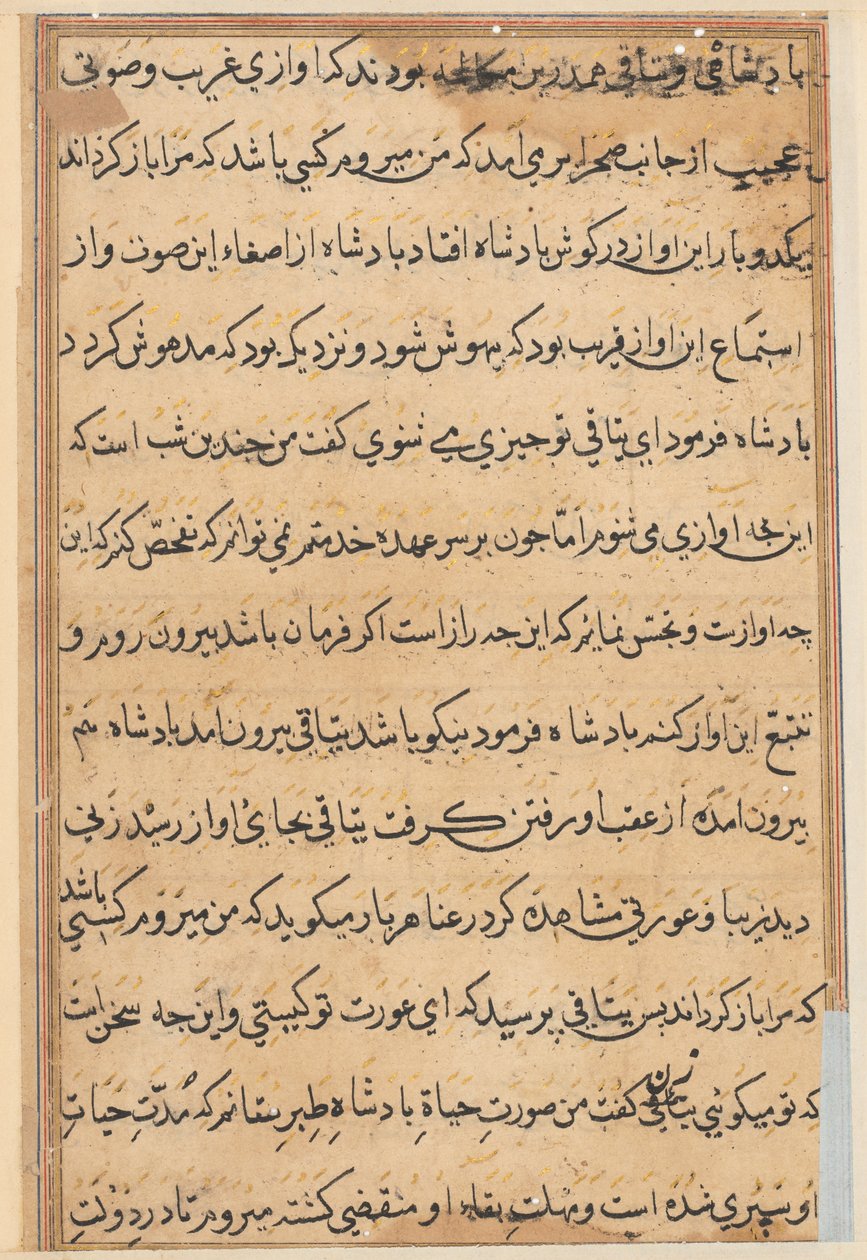 بادشاهی و یتاقی همدرین مکالمه بودند که اوازی غریب و صوتی
عجیب از جانب صحرا برمی امد که من میروم کسی باشد که مرا باز کرداند
یکدو بار این اواز در کوش بادشاه افتاد بادشاه از اصغاء این صوت و از
استماع این اواز قریب بود که بیهوش شود و نزدیک بود که مدهوش کردد
بادشاه فرمود ای یتاقی تو جیزی می شنوی کفت من جندین شب است که
این اوازی می شنوم امّا جون بر سر عهده خدمتم نمی توانم که تفحصّ کنم که این
چه اوازست و تجسّس نمایم که این جه رازاست اکر فرمان باشد بیرون روم و
تتبعّ این اواز کنم بادشاه فرمود نیکو باشد یتاقی بیرون امد بادشاه هم
بیرون امده از عقب او رفتن کرفت یتاقی بجایٔ اواز رسید زنی
دید زیبا و عورتی مشاهده کرد رعنا هر بار میکوید که من میروم کسی باشد
که مرا باز کرداند بس یتاقی پرسید که ای عورت تو کیستی و این جه سخن است
که تو میکویٔی یتاقی زن کفت من صورتِ حیاةِ بادشاهِ طبرستانم که مُدّتِ حیاتِ
او سپری شده است و مهلتِ بقاء او منقضی کشته میروم تا در دولتِ